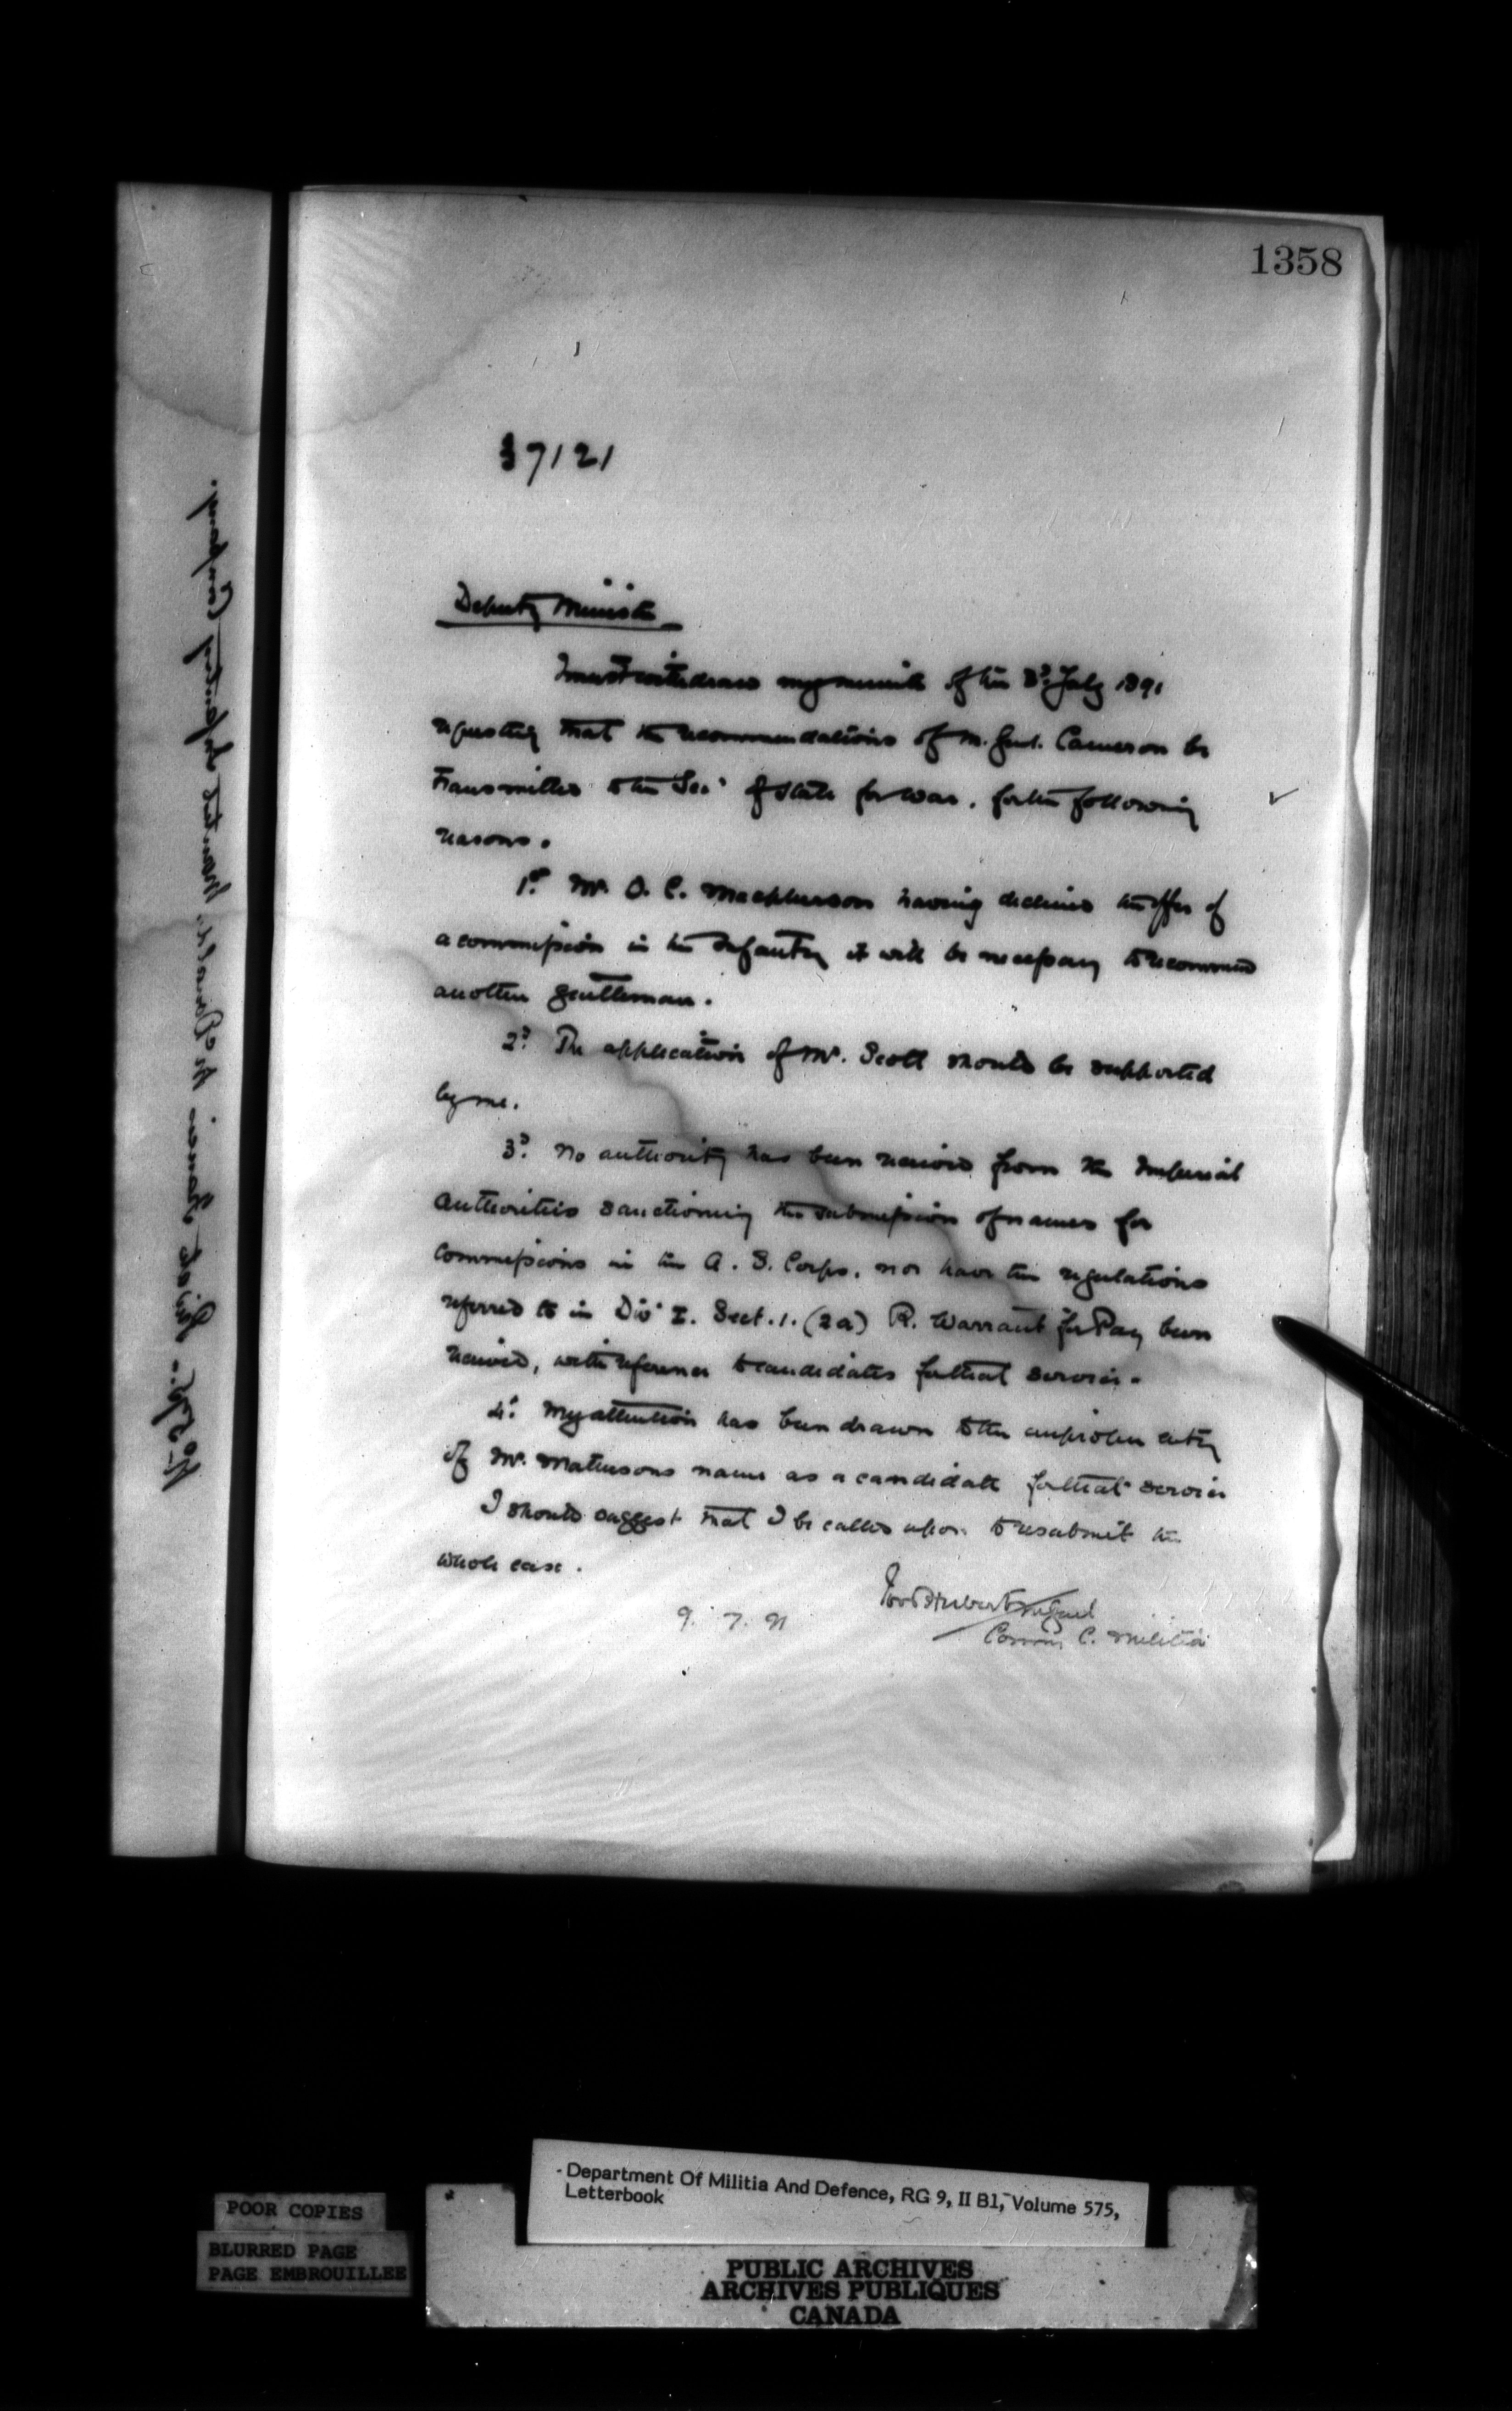 1358
37121
Deputy Minister
I must withdraw my minute of the 3d July 1891
requesting that the recommendations of M. Genl. Cameron be
transmitted to the Secy of State for War, for the following
reasons.
1st Mr. O. C. Macpherson having declined the offer of
a commission in the Infantry it will be necessary to recommend
another gentleman.
2d The application of Mr. Scott should be supported
by me.
3d No authority has been received from the Imperial
Authorities sanctioning the submission of names for
Commissions in the A. S. Corps, nor have the regulations
referred to in Divn I. Sect. 1. (2a) R. Warrant for Pay been
received, with reference to candidates for that service.
4. My attention has been drawn to the improper entry
of Mr. Mathesons name as a candidate for that service
I should suggest that I be called upon to resubmit the
whole case.
9. 7. 91
Ivor Herbert M Genl
Commg C. Militia
No 514. Private Francis McDonald, Mounted Infantry Company.
Department Of Militia And Defence, RG 9, II B1, Volume 575,
Letterbook
POOR COPIES
BLURRED PAGE
PAGE EMBROUILLEE
PUBLIC ARCHIVES
ARCHIVES PUBLIQUES
CANADA